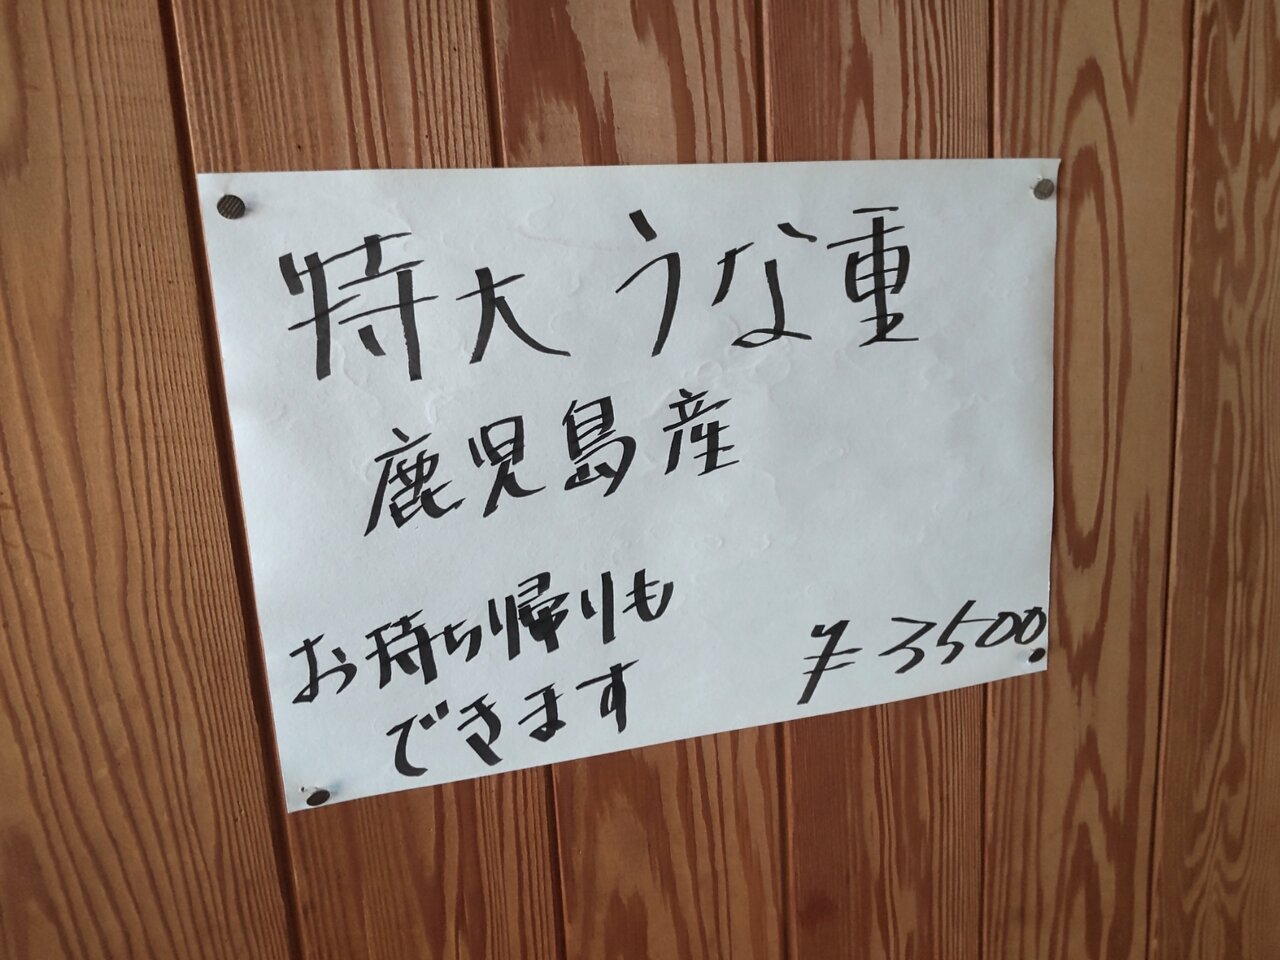 特大 うな重
鹿児島産
お持ち帰りも
できます
¥3500